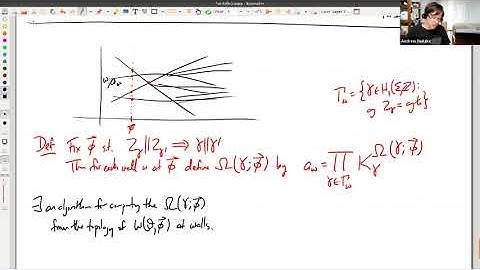 w, a_w
φ⃗
Γ_w = {γ ∈ H_1(Σ̃, ℤ):
Def Fix φ⃗ st. Z_γ ∥ Z_γ' ⟹ γ ∥ γ'
Then for each wall w at φ⃗ define Ω(γ; φ⃗) by a_w = ∏_{γ∈Γ_w} K_γ^{Ω(γ; φ⃗)}
∃ an algorithm for computing the Ω(γ; φ⃗)
from the topology of W(ϑ, φ⃗) at walls.
Andrew Neitzke